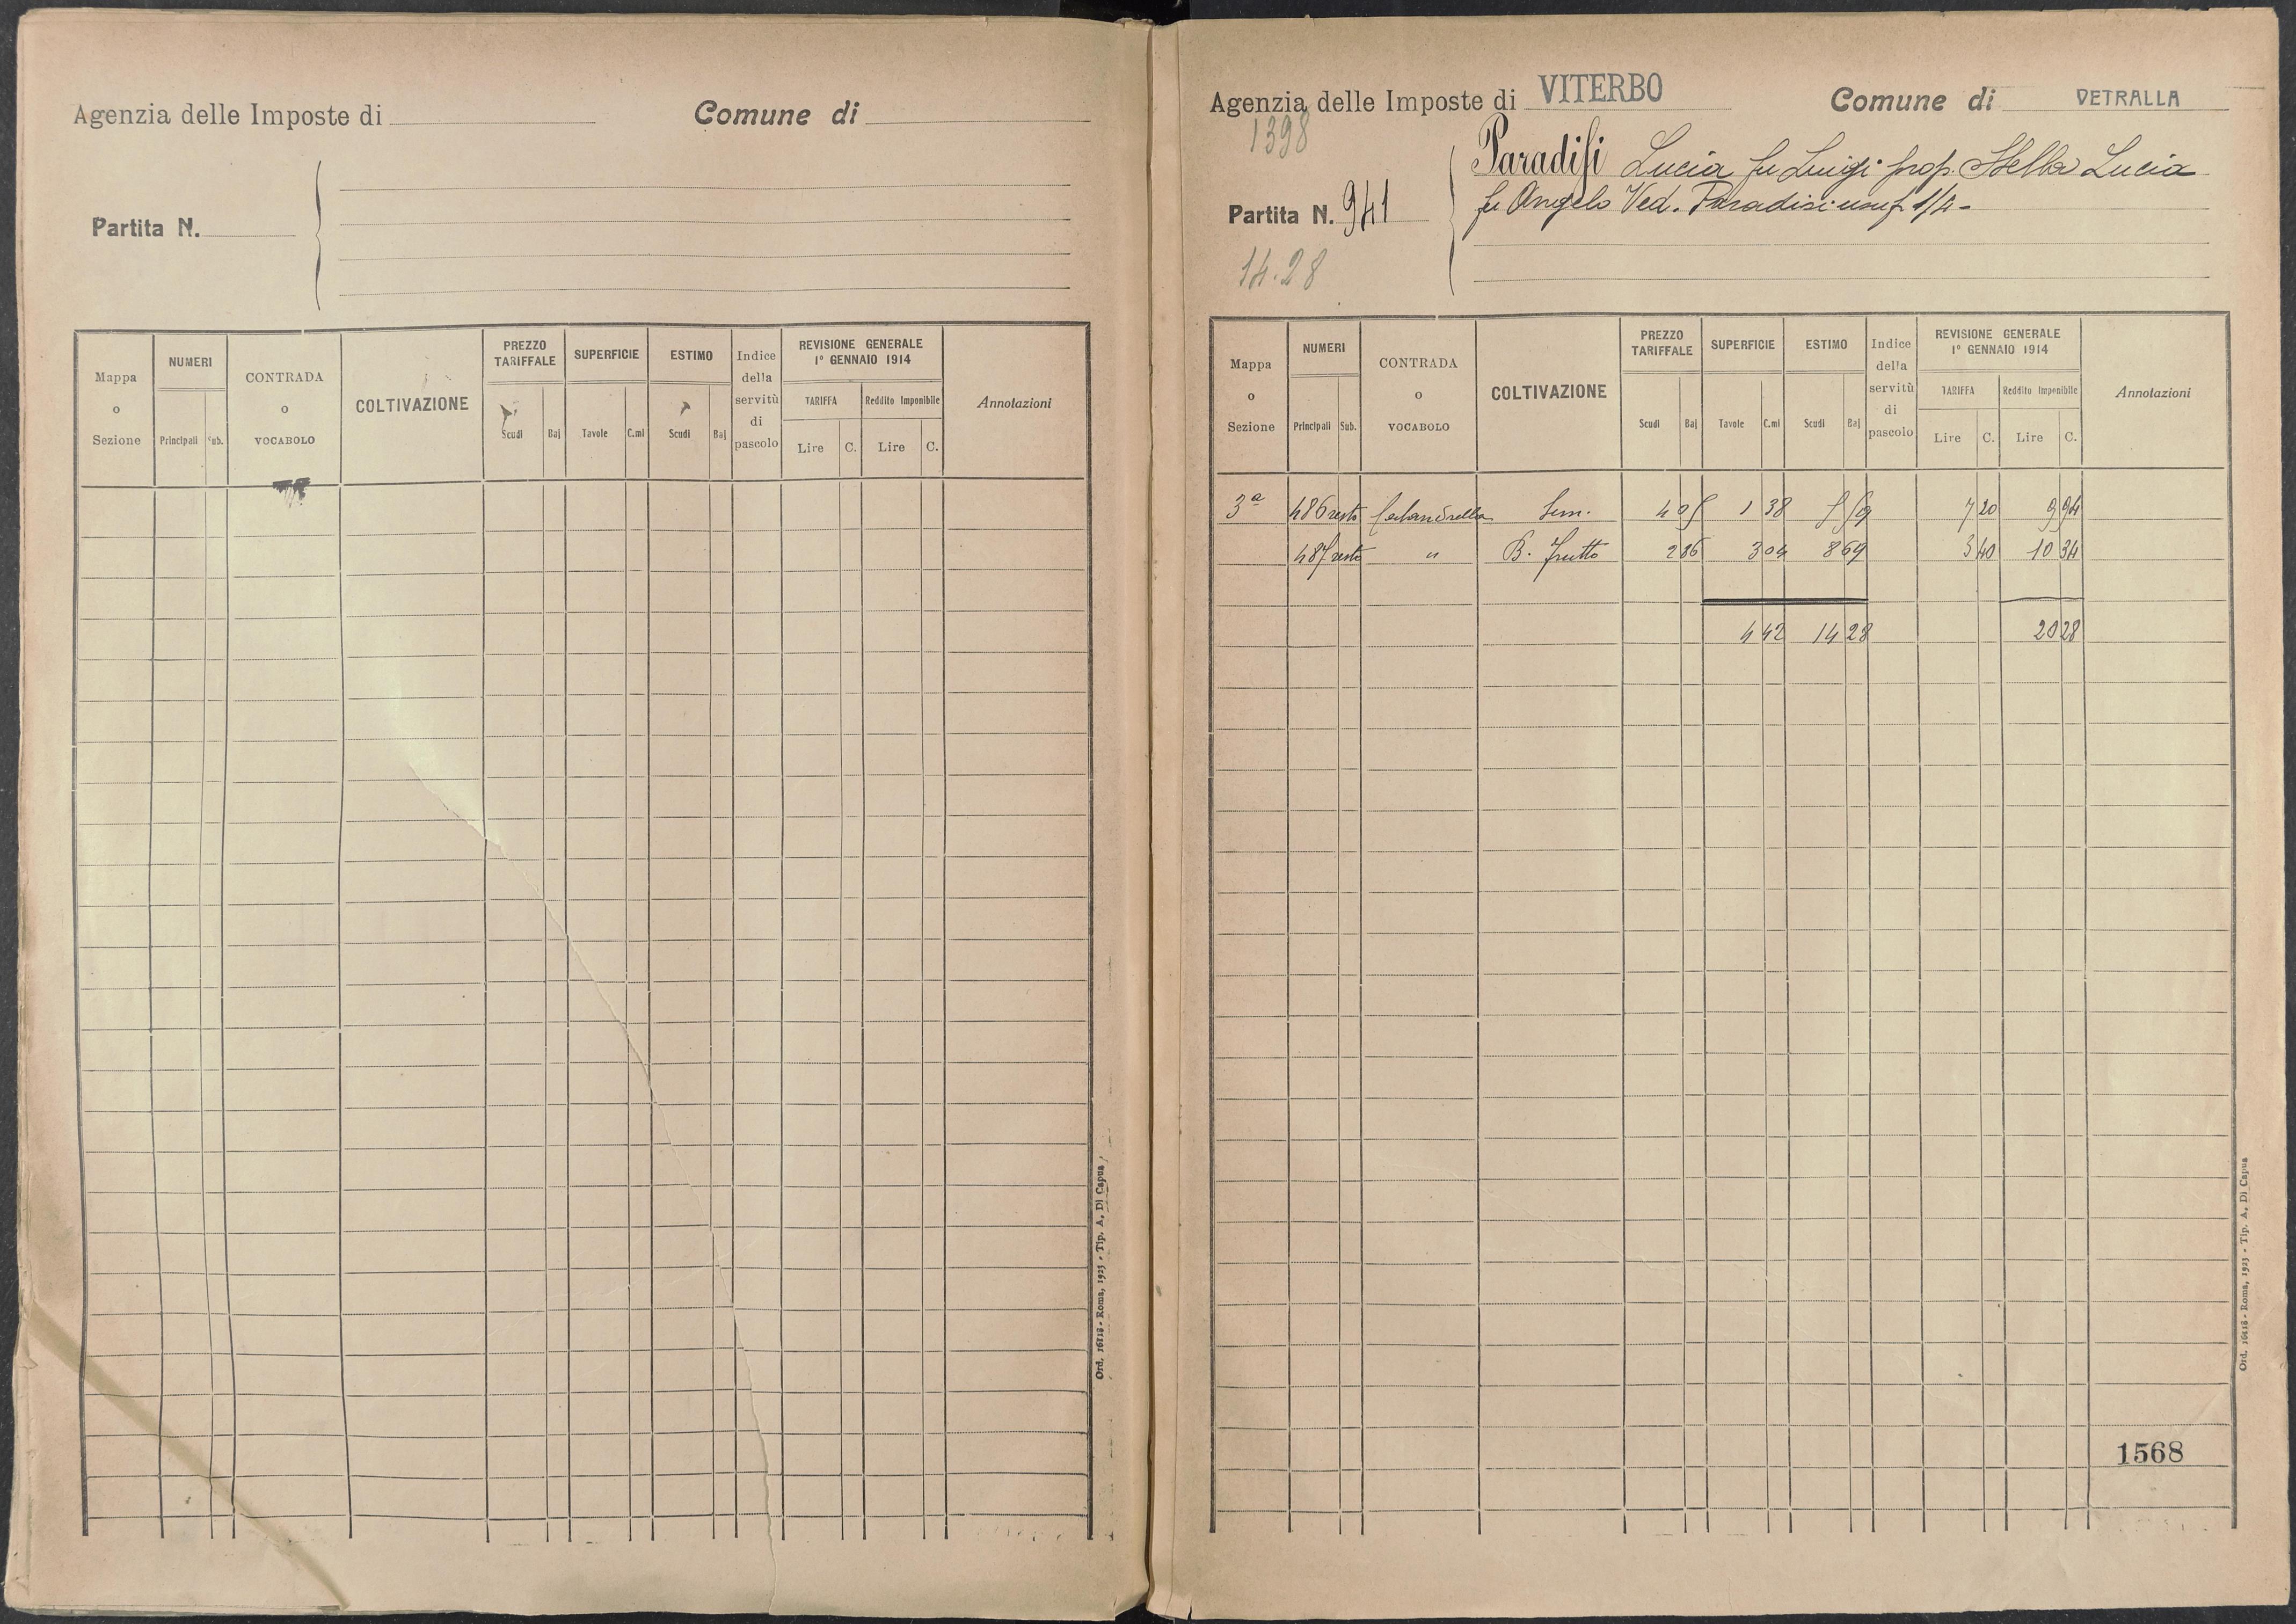 Agenzia delle Imposte di
Comune di
Partita N.
Mappa o Sezione
NUMERI
Principali Sub.
CONTRADA o VOCABOLO
COLTIVAZIONE
PREZZO TARIFFALE
Scudi Baj
SUPERFICIE
Tavole C.mi
ESTIMO
Scudi Baj
Indice della servitù di pascolo
REVISIONE GENERALE
1° GENNAIO 1914
TARIFFA Reddito Imponibile
Lire C. Lire C.
Annotazioni
Ord. 16118 - Roma, 1925 - Tip. A. Di Capua
Agenzia delle Imposte di VITERBO
Comune di VETRALLA
1398
Partita N. 941
14.28
Paradisi Lucia fu Luigi prop. Stella Lucia
fu Angelo Ved. Paradisi usuf 1/4 -
Mappa o Sezione
NUMERI
Principali Sub.
CONTRADA o VOCABOLO
COLTIVAZIONE
PREZZO TARIFFALE
Scudi Baj
SUPERFICIE
Tavole C.mi
ESTIMO
Scudi Baj
Indice della servitù di pascolo
REVISIONE GENERALE
1° GENNAIO 1914
TARIFFA Reddito Imponibile
Lire C. Lire C.
Annotazioni
3ª 486 resto Sem. 4 05 1 38 5 59 7 20 9 94
487 resto " B. frutto 2 86 3 04 8 69 3 40 10 34
4 42 14 28 20 28
1568
Ord. 16118 - Roma, 1925 - Tip. A. Di Capua